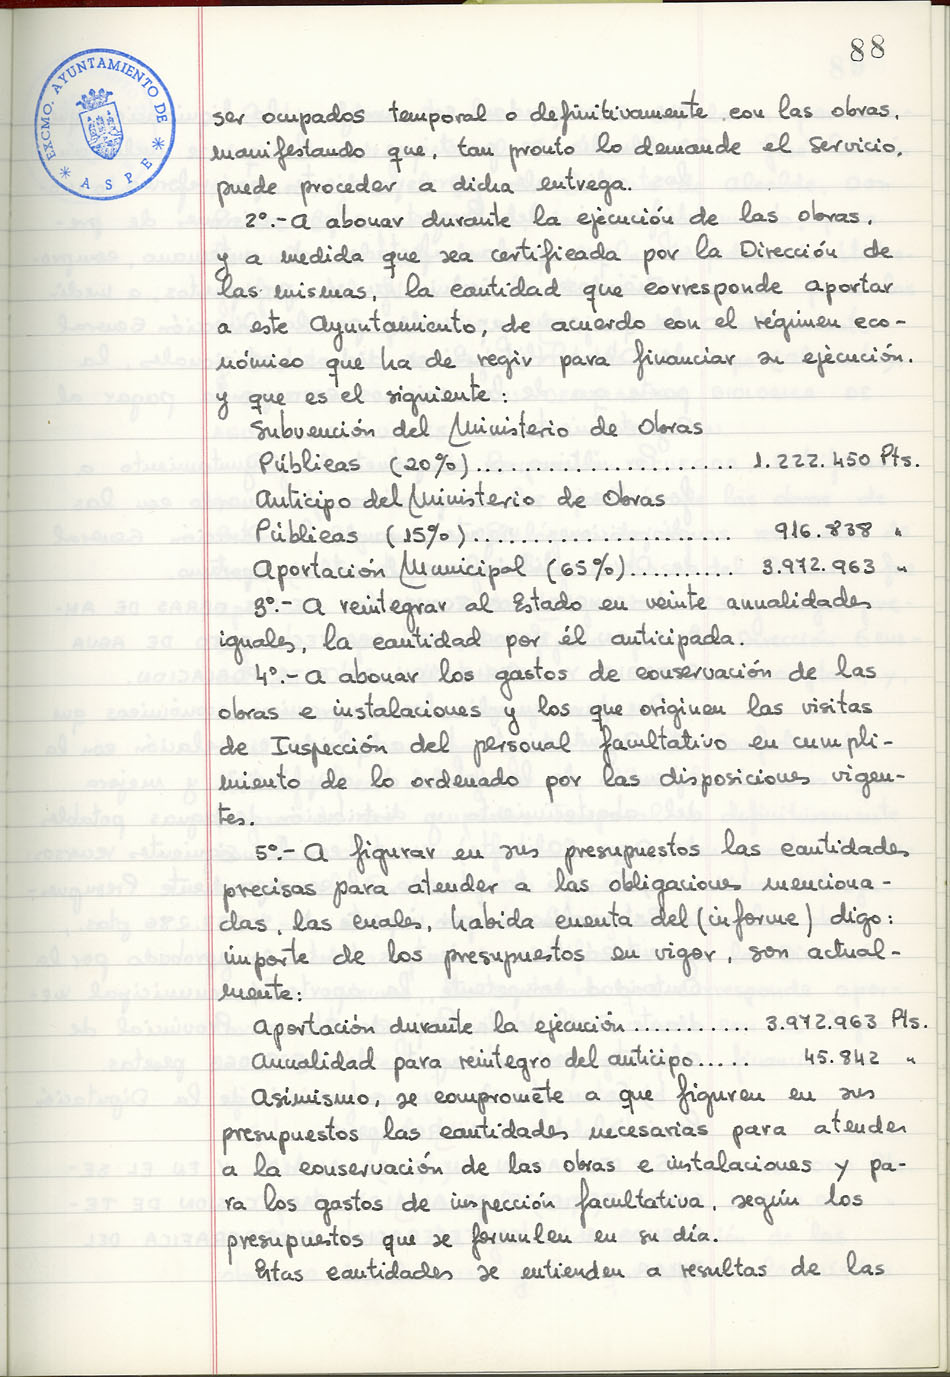 88
EXCMO. AYUNTAMIENTO DE
* ASPE *
ser ocupados temporal o definitivamente con las obras,
manifestando que, tan pronto lo demande el Servicio,
puede proceder a dicha entrega.
2º.- A abonar durante la ejecución de las obras,
y a medida que sea certificada por la Dirección de
las mismas, la cantidad que corresponde aportar
a este Ayuntamiento, de acuerdo con el régimen eco-
nómico que ha de regir para financiar su ejecución,
y que es el siguiente:
Subvención del Ministerio de Obras
Públicas (20%)..................... 1.222.450 Pts.
Anticipo del Ministerio de Obras
Públicas (15%)..................... 916.838 "
Aportación Municipal (65%).......... 3.972.963 "
3º.- A reintegrar al Estado en veinte anualidades
iguales, la cantidad por él anticipada.
4º.- A abonar los gastos de conservación de las
obras e instalaciones y los que originen las visitas
de Inspección del personal facultativo en cumpli-
miento de lo ordenado por las disposiciones vigen-
tes.
5º.- A figurar en sus presupuestos las cantidades
precisas para atender a las obligaciones menciona-
das, las cuales, habida cuenta del (informe) digo:
importe de los presupuestos en vigor, son actual-
mente:
Aportación durante la ejecución........... 3.972.963 Pts.
Anualidad para reintegro del anticipo..... 45.842 "
Asimismo, se compromete a que figuren en sus
presupuestos las cantidades necesarias para atender
a la conservación de las obras e instalaciones y pa-
ra los gastos de inspección facultativa, según los
presupuestos que se formulen en su día.
Estas cantidades se entienden a resultas de las